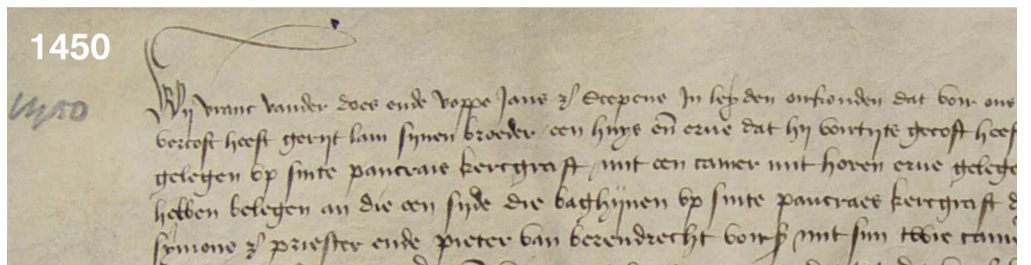 1450
1450
Wij vranc vander does ende voppe Jans zꝭ Scepene In leyden orkonden dat voir ons
vercoft heeft gerijt lam sijnen broeder een huys eñ erue dat hij voirtijts gecoft heef
gelegen vp sinte pancraes kercgraft mit een camer mit horen erue gelege
hebben belegen an die een sijde die baghijnen vp sinte pancraes kercgraft
symons zꝭ priester ende pieter van berendrecht mit sijn twie came